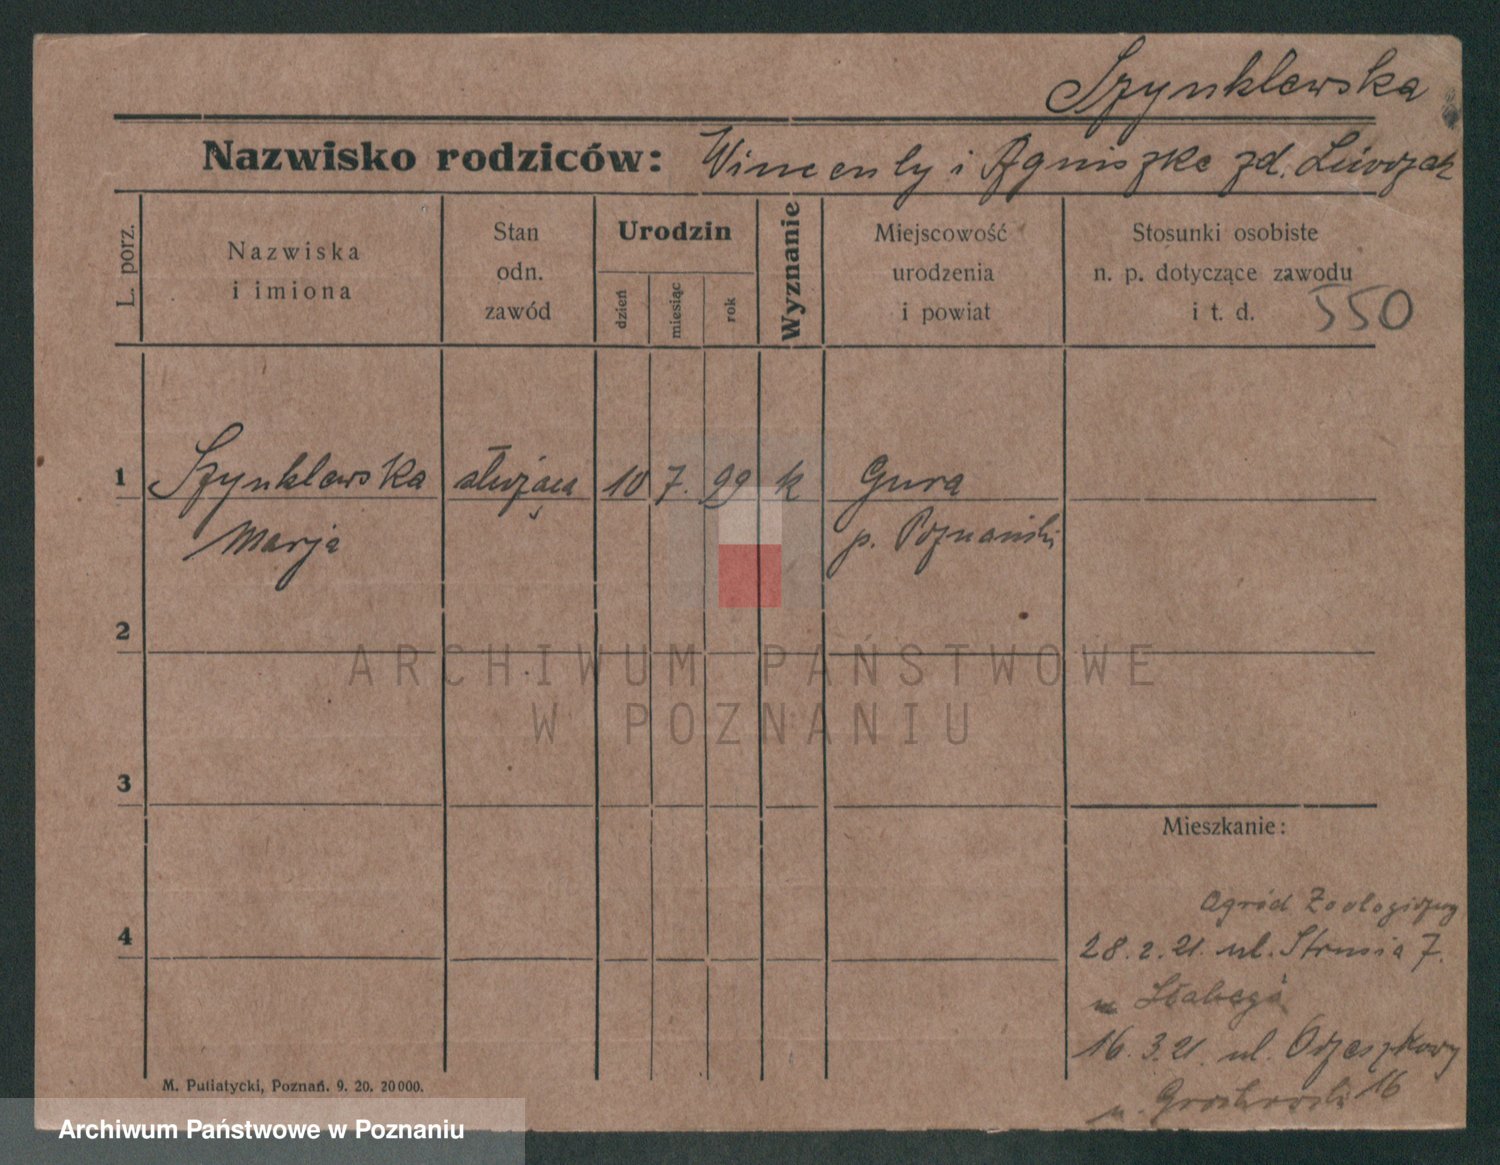 Szynklewska
Nazwisko rodziców: Wincenty i Agniszka zd.
L. porz.
Nazwiska
i imiona
Stan
odn.
zawód
Urodzin
dzień
miesiąc
rok
Wyznanie
Miejscowość
urodzenia
i powiat
Stosunki osobiste
n. p. dotyczące zawodu
i t. d. 550
1 Szynklewska służąca 10 7. 99 k Gura
Marja p. Poznański
2
ARCHIWUM PAŃSTWOWE
W POZNANIU
3
Mieszkanie:
Ogród Zoologiczny
4
28.2.21. ul. Strusia 7.
16.3.21. ul. Orzeszkowy
16
M. Putiatycki, Poznań. 9. 20. 20000.
Archiwum Państwowe w Poznaniu